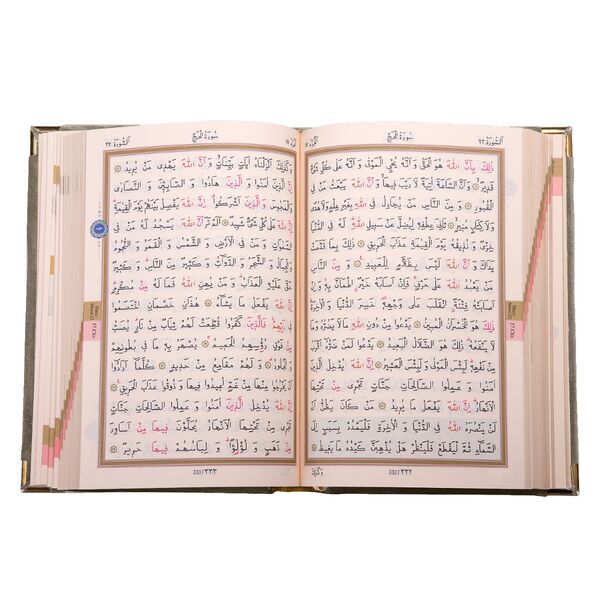 اَلسُّورَةُ ٢٢ سُورَةُ الْحَجِّ
ذٰلِكَ بِاَنَّ اللّٰهَ هُوَ الْحَقُّ وَ اَنَّهُ يُحْيِ الْمَوْتٰى وَ اَنَّهُ عَلٰى كُلِّ شَيْءٍ
قَد۪يرٌۙ ۝ وَ اَنَّ السَّاعَةَ اٰتِيَةٌ لَا رَيْبَ ف۪يهَاۙ وَ اَنَّ اللّٰهَ يَبْعَثُ مَنْ فِي
الْقُبُورِ ۝ وَ مِنَ النَّاسِ مَنْ يُجَادِلُ فِي اللّٰهِ بِغَيْرِ عِلْمٍ وَ لَا هُدًى
وَ لَا كِتَابٍ مُن۪يرٍۙ ۝ ثَانِيَ عِطْفِه۪ لِيُضِلَّ عَنْ سَب۪يلِ اللّٰهِؕ لَهُ فِي الدُّنْيَا
خِزْيٌ وَ نُذ۪يقُهُ يَوْمَ الْقِيٰمَةِ عَذَابَ الْحَر۪يقِ ۝ ذٰلِكَ بِمَا قَدَّمَتْ
يَدَاكَ وَ اَنَّ اللّٰهَ لَيْسَ بِظَلَّامٍ لِلْعَب۪يدِ ۝ وَ مِنَ النَّاسِ مَنْ يَعْبُدُ
اللّٰهَ عَلٰى حَرْفٍۚ فَاِنْ اَصَابَهُ خَيْرٌ اطْمَاَنَّ بِه۪ۚ وَ اِنْ
اَصَابَتْهُ فِتْنَةٌ انْقَلَبَ عَلٰى وَجْهِه۪ۚ خَسِرَ الدُّنْيَا وَ الْاٰخِرَةَؕ
ذٰلِكَ هُوَ الْخُسْرَانُ الْمُب۪ينُ ۝ يَدْعُوا مِنْ دُونِ اللّٰهِ مَا لَا يَضُرُّهُ وَ مَا
لَا يَنْفَعُهُؕ ذٰلِكَ هُوَ الضَّلَالُ الْبَع۪يدُۚ ۝ يَدْعُوا لَمَنْ ضَرُّهُ اَقْرَبُ
مِنْ نَفْعِه۪ؕ لَبِئْسَ الْمَوْلٰى وَ لَبِئْسَ الْعَش۪يرُ ۝ اِنَّ اللّٰهَ يُدْخِلُ الَّذ۪ينَ
اٰمَنُوا وَ عَمِلُوا الصَّالِحَاتِ جَنَّاتٍ تَجْر۪ي مِنْ تَحْتِهَا
الْاَنْهَارُؕ اِنَّ اللّٰهَ يَفْعَلُ مَا يُر۪يدُ ۝ مَنْ كَانَ يَظُنُّ اَنْ لَنْ
يَنْصُرَهُ اللّٰهُ فِي الدُّنْيَا وَ الْاٰخِرَةِ فَلْيَمْدُدْ بِسَبَبٍ اِلَى
السَّمَٓاءِ ثُمَّ لْيَقْطَعْ فَلْيَنْظُرْ هَلْ يُذْهِبَنَّ كَيْدُهُ مَا يَغ۪يظُ ۝
332/٣٣٢
اَلسُّورَةُ ٢٢ سُورَةُ الْحَجِّ
وَ كَذٰلِكَ اَنْزَلْنَاهُ اٰيَاتٍ بَيِّنَاتٍۙ وَ اَنَّ اللّٰهَ يَهْد۪ي مَنْ يُر۪يدُ ۝
اِنَّ الَّذ۪ينَ اٰمَنُوا وَ الَّذ۪ينَ هَادُوا وَ الصَّابِـ۪ٔينَ وَ النَّصَارٰى
وَ الْمَجُوسَ وَ الَّذ۪ينَ اَشْرَكُواۗ اِنَّ اللّٰهَ يَفْصِلُ بَيْنَهُمْ يَوْمَ الْقِيٰمَةِؕ
اِنَّ اللّٰهَ عَلٰى كُلِّ شَيْءٍ شَه۪يدٌ ۝ اَلَمْ تَرَ اَنَّ اللّٰهَ يَسْجُدُ لَهُ مَنْ فِي
السَّمٰوَاتِ وَ مَنْ فِي الْاَرْضِ وَ الشَّمْسُ وَ الْقَمَرُ وَ النُّجُومُ
وَ الْجِبَالُ وَ الشَّجَرُ وَ الدَّوَٓابُّ وَ كَث۪يرٌ مِنَ النَّاسِؕ وَ كَث۪يرٌ
حَقَّ عَلَيْهِ الْعَذَابُؕ وَ مَنْ يُهِنِ اللّٰهُ فَمَا لَهُ مِنْ مُكْرِمٍؕ
اِنَّ اللّٰهَ يَفْعَلُ مَا يَشَٓاءُ ۝ هٰذَانِ خَصْمَانِ اخْتَصَمُوا
ف۪ي رَبِّهِمْؗ فَالَّذ۪ينَ كَفَرُوا قُطِّعَتْ لَهُمْ ثِيَابٌ مِنْ نَارٍؕ يُصَبُّ
مِنْ فَوْقِ رُؤُ۫سِهِمُ الْحَم۪يمُۚ ۝ يُصْهَرُ بِه۪ مَا ف۪ي بُطُونِهِمْ
وَ الْجُلُودُؕ ۝ وَ لَهُمْ مَقَامِعُ مِنْ حَد۪يدٍ ۝ كُلَّمَٓا اَرَادُٓوا
اَنْ يَخْرُجُوا مِنْهَا مِنْ غَمٍّ اُع۪يدُوا ف۪يهَا وَ ذُوقُوا عَذَابَ الْحَر۪يقِ ۝
اِنَّ اللّٰهَ يُدْخِلُ الَّذ۪ينَ اٰمَنُوا وَ عَمِلُوا الصَّالِحَاتِ جَنَّاتٍ
تَجْر۪ي مِنْ تَحْتِهَا الْاَنْهَارُ يُحَلَّوْنَ ف۪يهَا مِنْ اَسَاوِرَ
مِنْ ذَهَبٍ وَ لُؤْلُؤًاؕ وَ لِبَاسُهُمْ ف۪يهَا حَر۪يرٌ ۝
333/٣٣٣